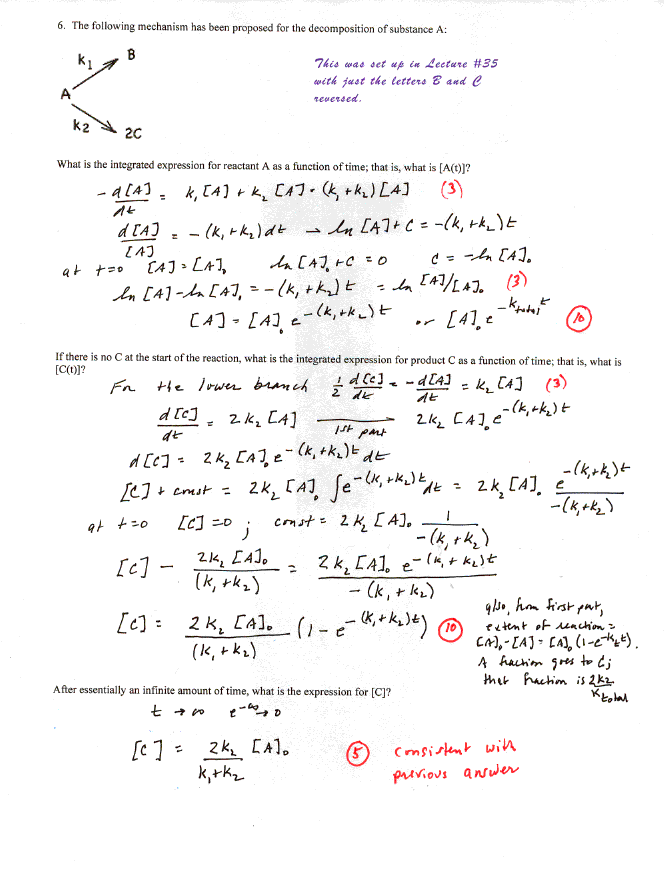 6. The following mechanism has been proposed for the decomposition of substance A:
k1 B
A
k2 2C
This was set up in Lecture #35
with just the letters B and C
reversed.
What is the integrated expression for reactant A as a function of time; that is, what is [A(t)]?
- d[A]/dt = k₁[A] + k₂[A] = (k₁+k₂)[A] (3)
d[A]/[A] = -(k₁+k₂)dt → ln[A]+C = -(k₁+k₂)t
at t=0 [A]=[A]₀ ln[A]₀+C = 0 C = -ln[A]₀
ln[A]-ln[A]₀ = -(k₁+k₂)t = ln [A]/[A]₀ (3)
[A] = [A]₀ e^-(k₁+k₂)t or [A]₀ e^-k_total t (10)
If there is no C at the start of the reaction, what is the integrated expression for product C as a function of time; that is, what is
[C(t)]?
For the lower branch 1/2 d[C]/dt = -d[A]/dt = k₂[A] (3)
d[C]/dt = 2k₂[A] 1st part → 2k₂[A]₀e^-(k₁+k₂)t
d[C] = 2k₂[A]₀e^-(k₁+k₂)t dt
[C] + const = 2k₂[A]₀ ∫e^-(k₁+k₂)t dt = 2k₂[A]₀ e^-(k₁+k₂)t/-(k₁+k₂)
at t=0 [C]=0 ; const = 2k₂[A]₀ 1/-(k₁+k₂)
[C] - 2k₂[A]₀/(k₁+k₂) = 2k₂[A]₀ e^-(k₁+k₂)t/-(k₁+k₂)
[C] = 2k₂[A]₀/(k₁+k₂) (1-e^-(k₁+k₂)t) (10)
also, from first part,
extent of reaction =
[A]₀-[A] = [A]₀(1-e^-k_t t).
A fraction goes to C;
that fraction is 2k2/k_total
After essentially an infinite amount of time, what is the expression for [C]?
t → ∞ e^-∞ → 0
[C] = 2k₂/k₁+k₂ [A]₀ (5) consistent with
previous answer